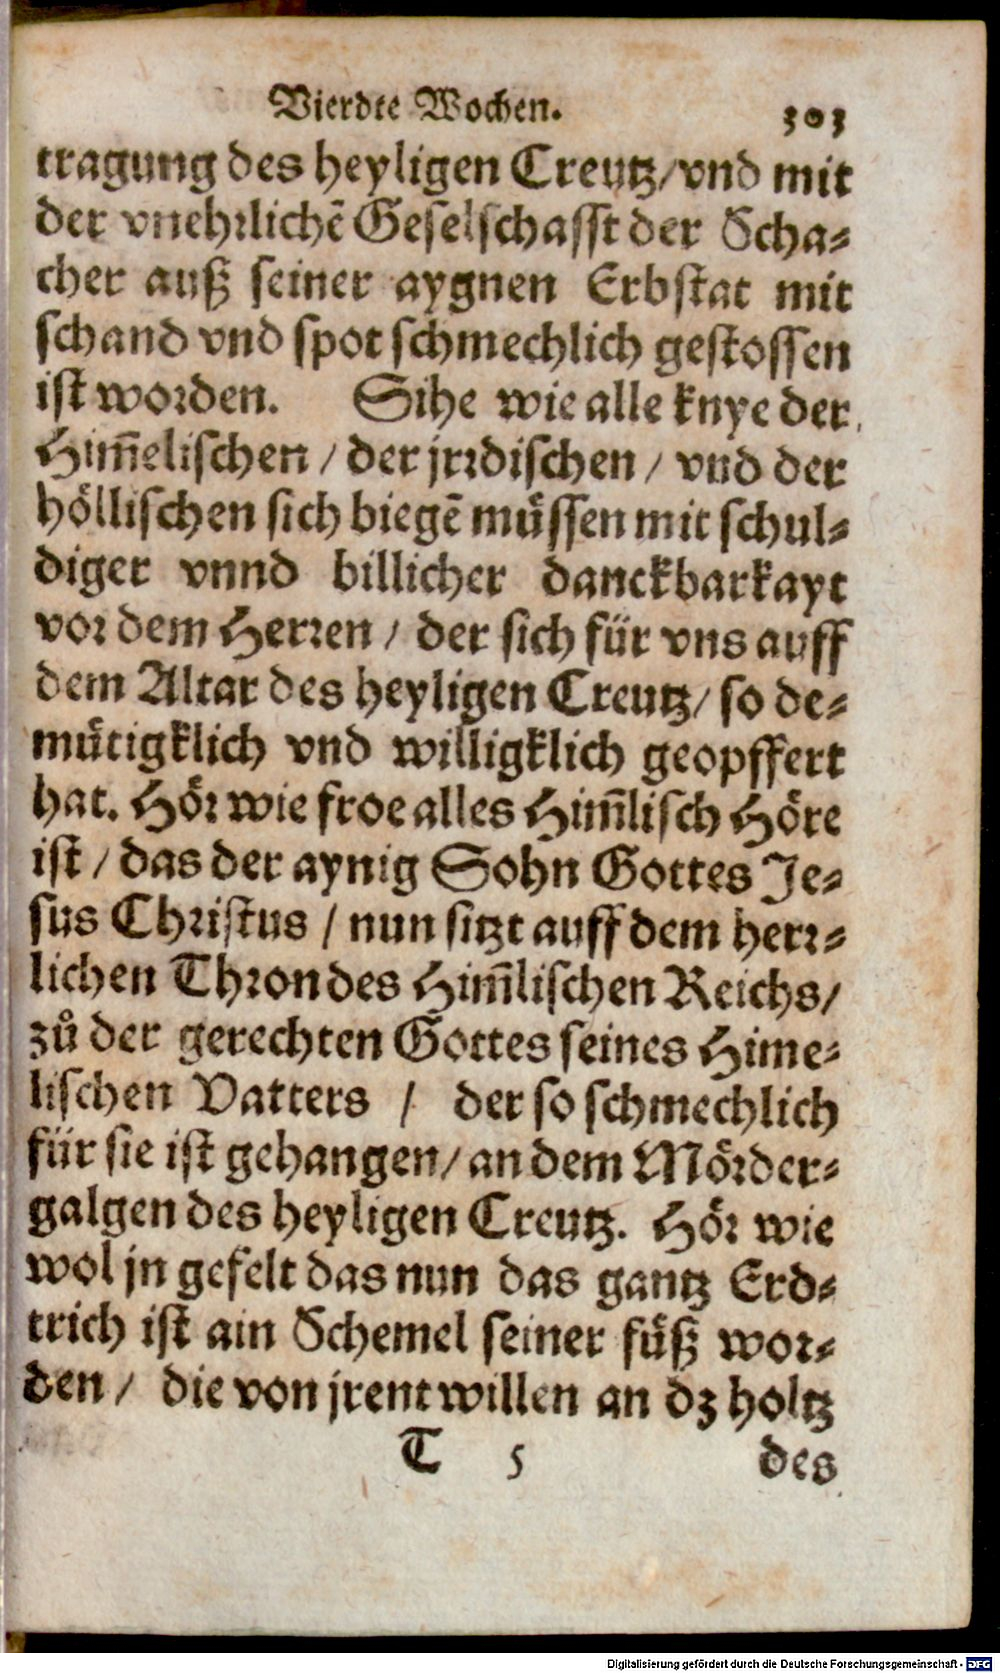 Vierdte Wochen. 303
tragung des heyligen Creutz/vnd mit
der vnehrlichē Geselschafft der Scha-
cher auß seiner aygnen Erbstat mit
schand vnd spot schmechlich gestossen
ist worden. Sihe wie alle knye der
Him̄elischen / der jrrdischen / vnd der
höllischen sich biegē müssen mit schul-
diger vnnd billicher danckbarkayt
vor dem Herren / der sich für vns auff
dem Altar des heyligen Creutz/ so de-
mütigklich vnd willigklich geopffert
hat. Hör wie froe alles Him̄lisch Höre
ist / das der aynig Sohn Gottes Je-
sus Christus / nun sitzt auff dem herr-
lichen Thron des Him̄lischen Reichs/
zů der gerechten Gottes seines Hime-
lischen Vatters / der so schmechlich
für sie ist gehangen/ an dem Mörder-
galgen des heyligen Creutz. Hör wie
wol jn gefelt das nun das gantz Erd-
trich ist ain Schemel seiner füß wor-
den / die von jrent willen an dz holtz
T 5 des
Digitalisierung gefördert durch die Deutsche Forschungsgemeinschaft - DFG